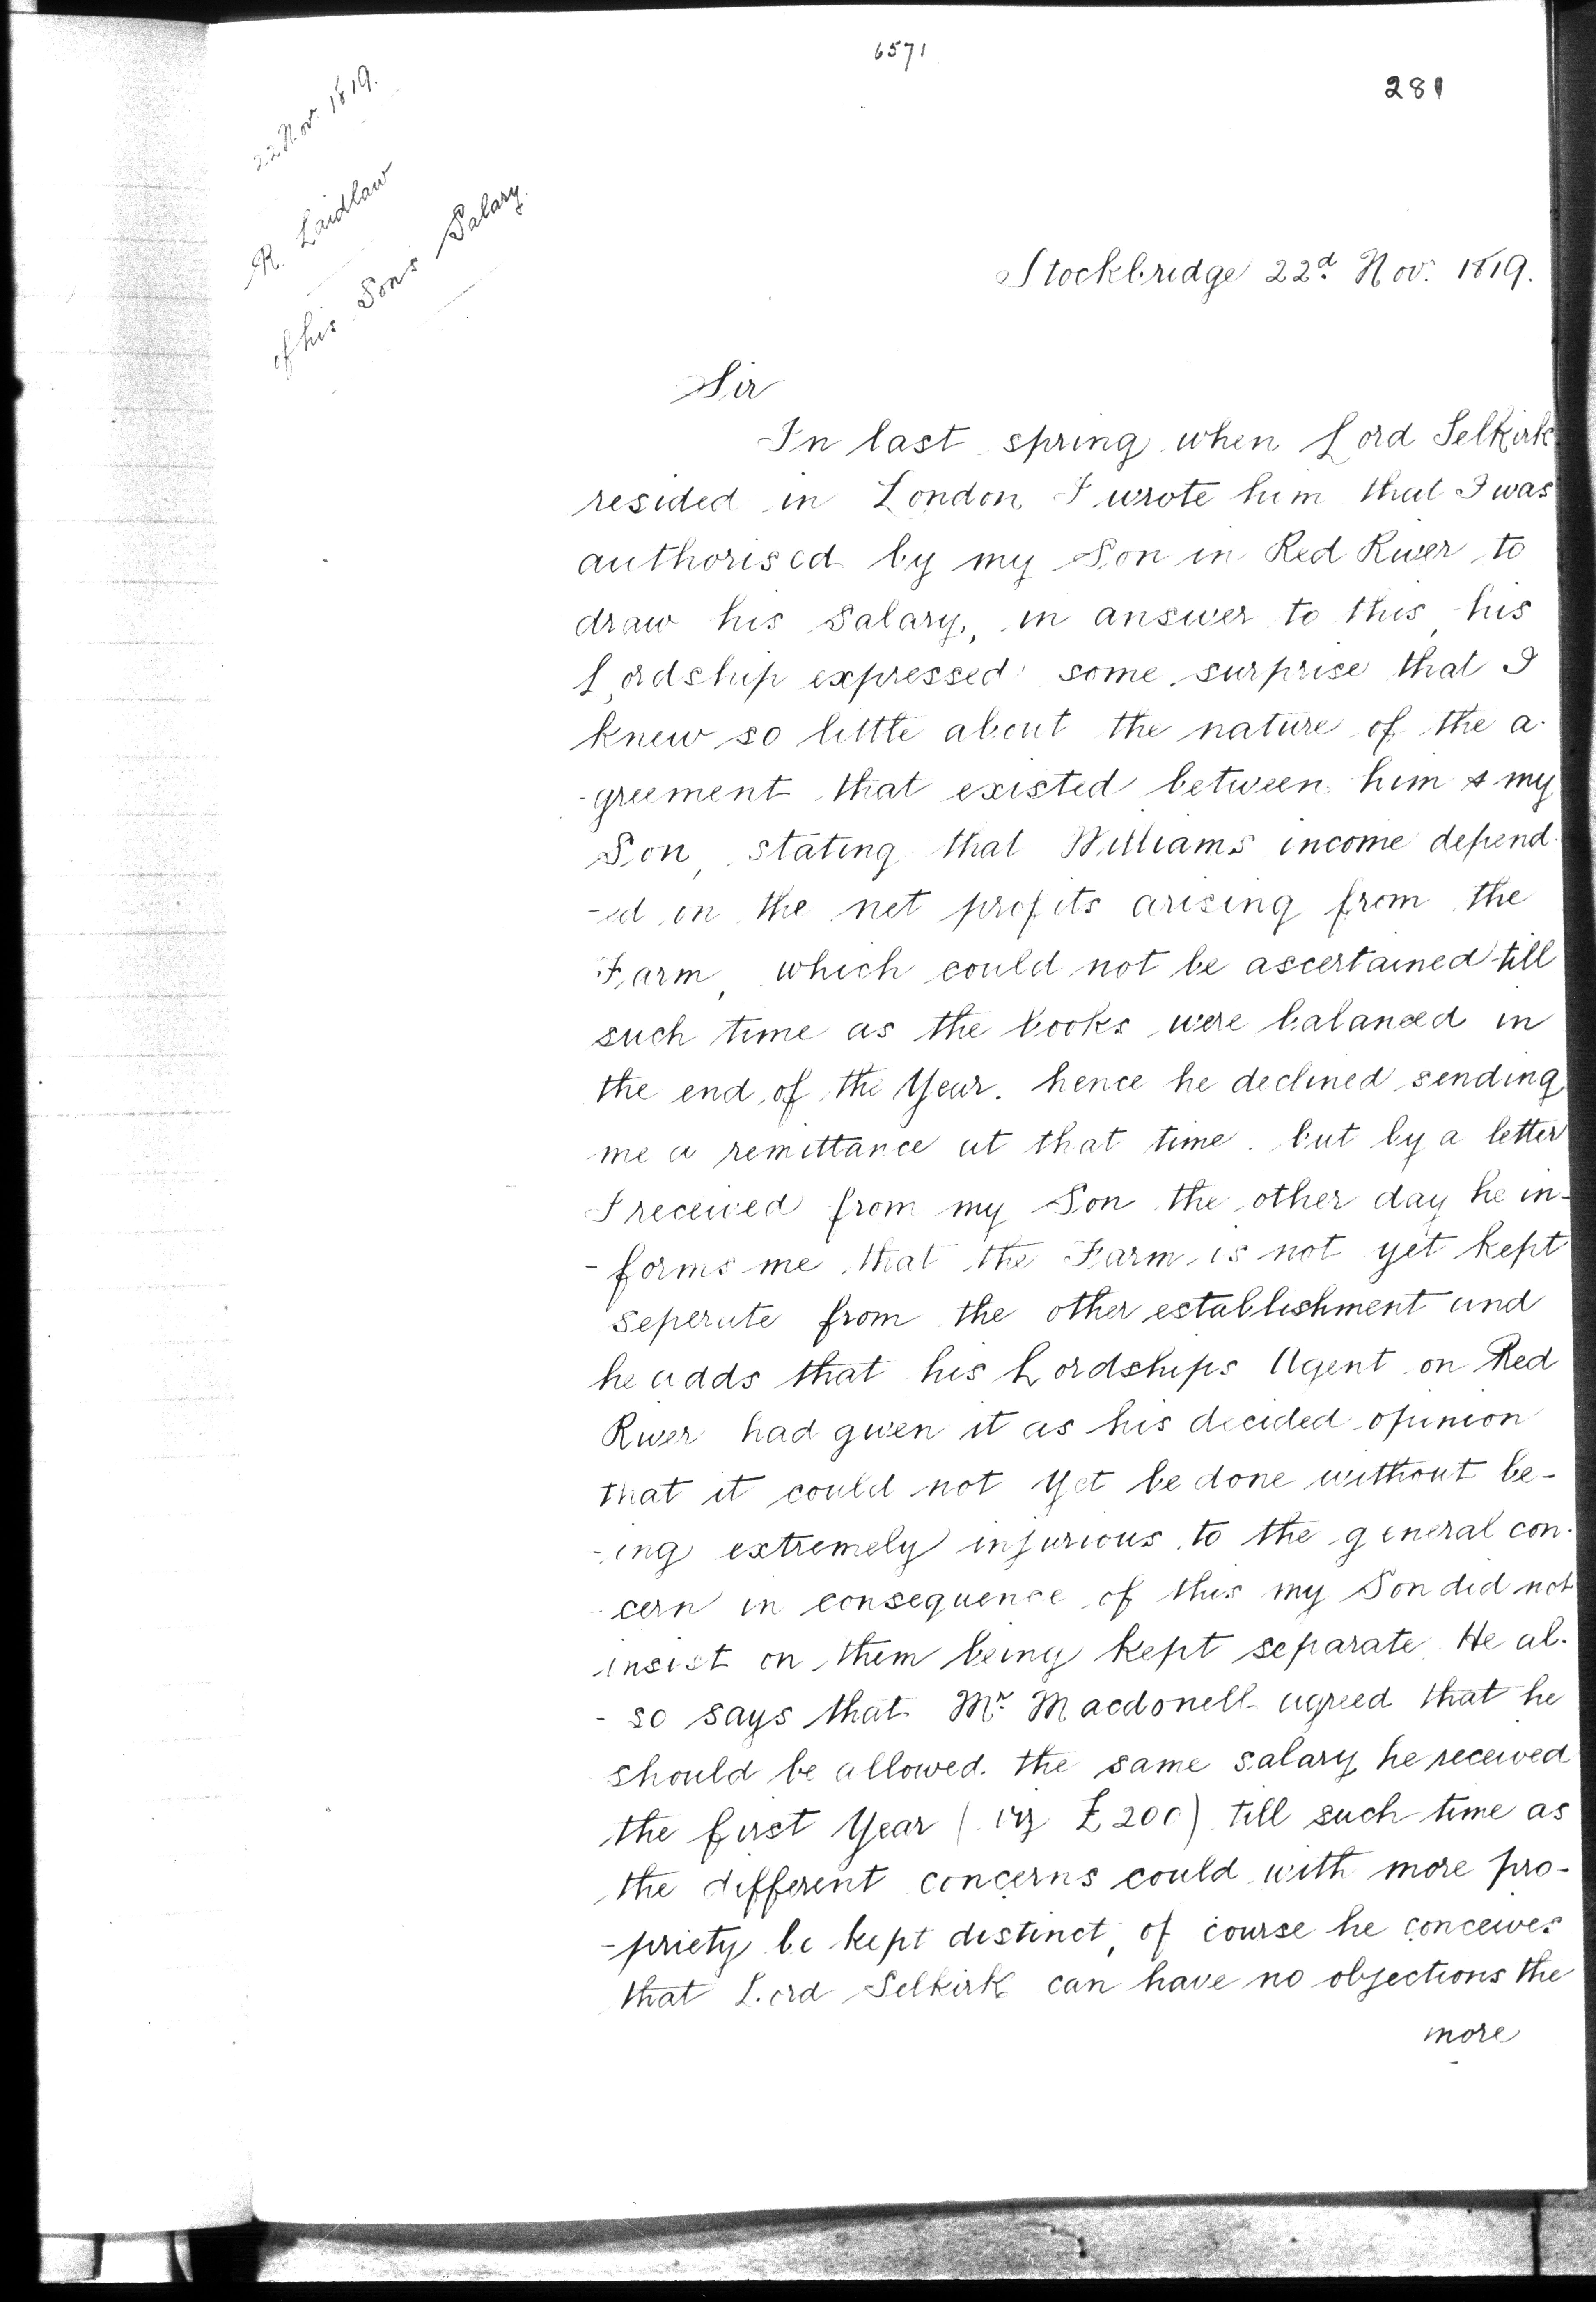 6571
281
22 Nov. 1819.
R. Laidlaw
of his Sons Salary.
Stockbridge 22d Nov. 1819.
Sir
In last spring when Lord Selkirk
resided in London I wrote him that I was
authorised by my Son in Red River to
draw his Salary, in answer to this, his
Lordship expressed some surprise that I
knew so little about the nature of the a-
-greement that existed between him & my
Son, stating that Williams income depend-
-ed on the net profits arising from the
Farm, which could not be ascertained till
such time as the books were balanced in
the end of the Year. hence he declined sending
me a remittance at that time. but by a letter
I received from my Son the other day he in-
-forms me that the Farm is not yet kept
seperate from the other establishment and
he adds that his Lordships Agent on Red
River had given it as his decided opinion
that it could not yet be done without be-
-ing extremely injurious to the general con-
-cern in consequence of this my Son did not
insist on them being kept separate. He al-
-so says that Mr. Macdonell agreed that he
should be allowed the same salary he received
the first Year (viz £200) till such time as
the different concerns could with more pro-
-priety be kept distinct, of course he conceives
that Lord Selkirk can have no objections the
more